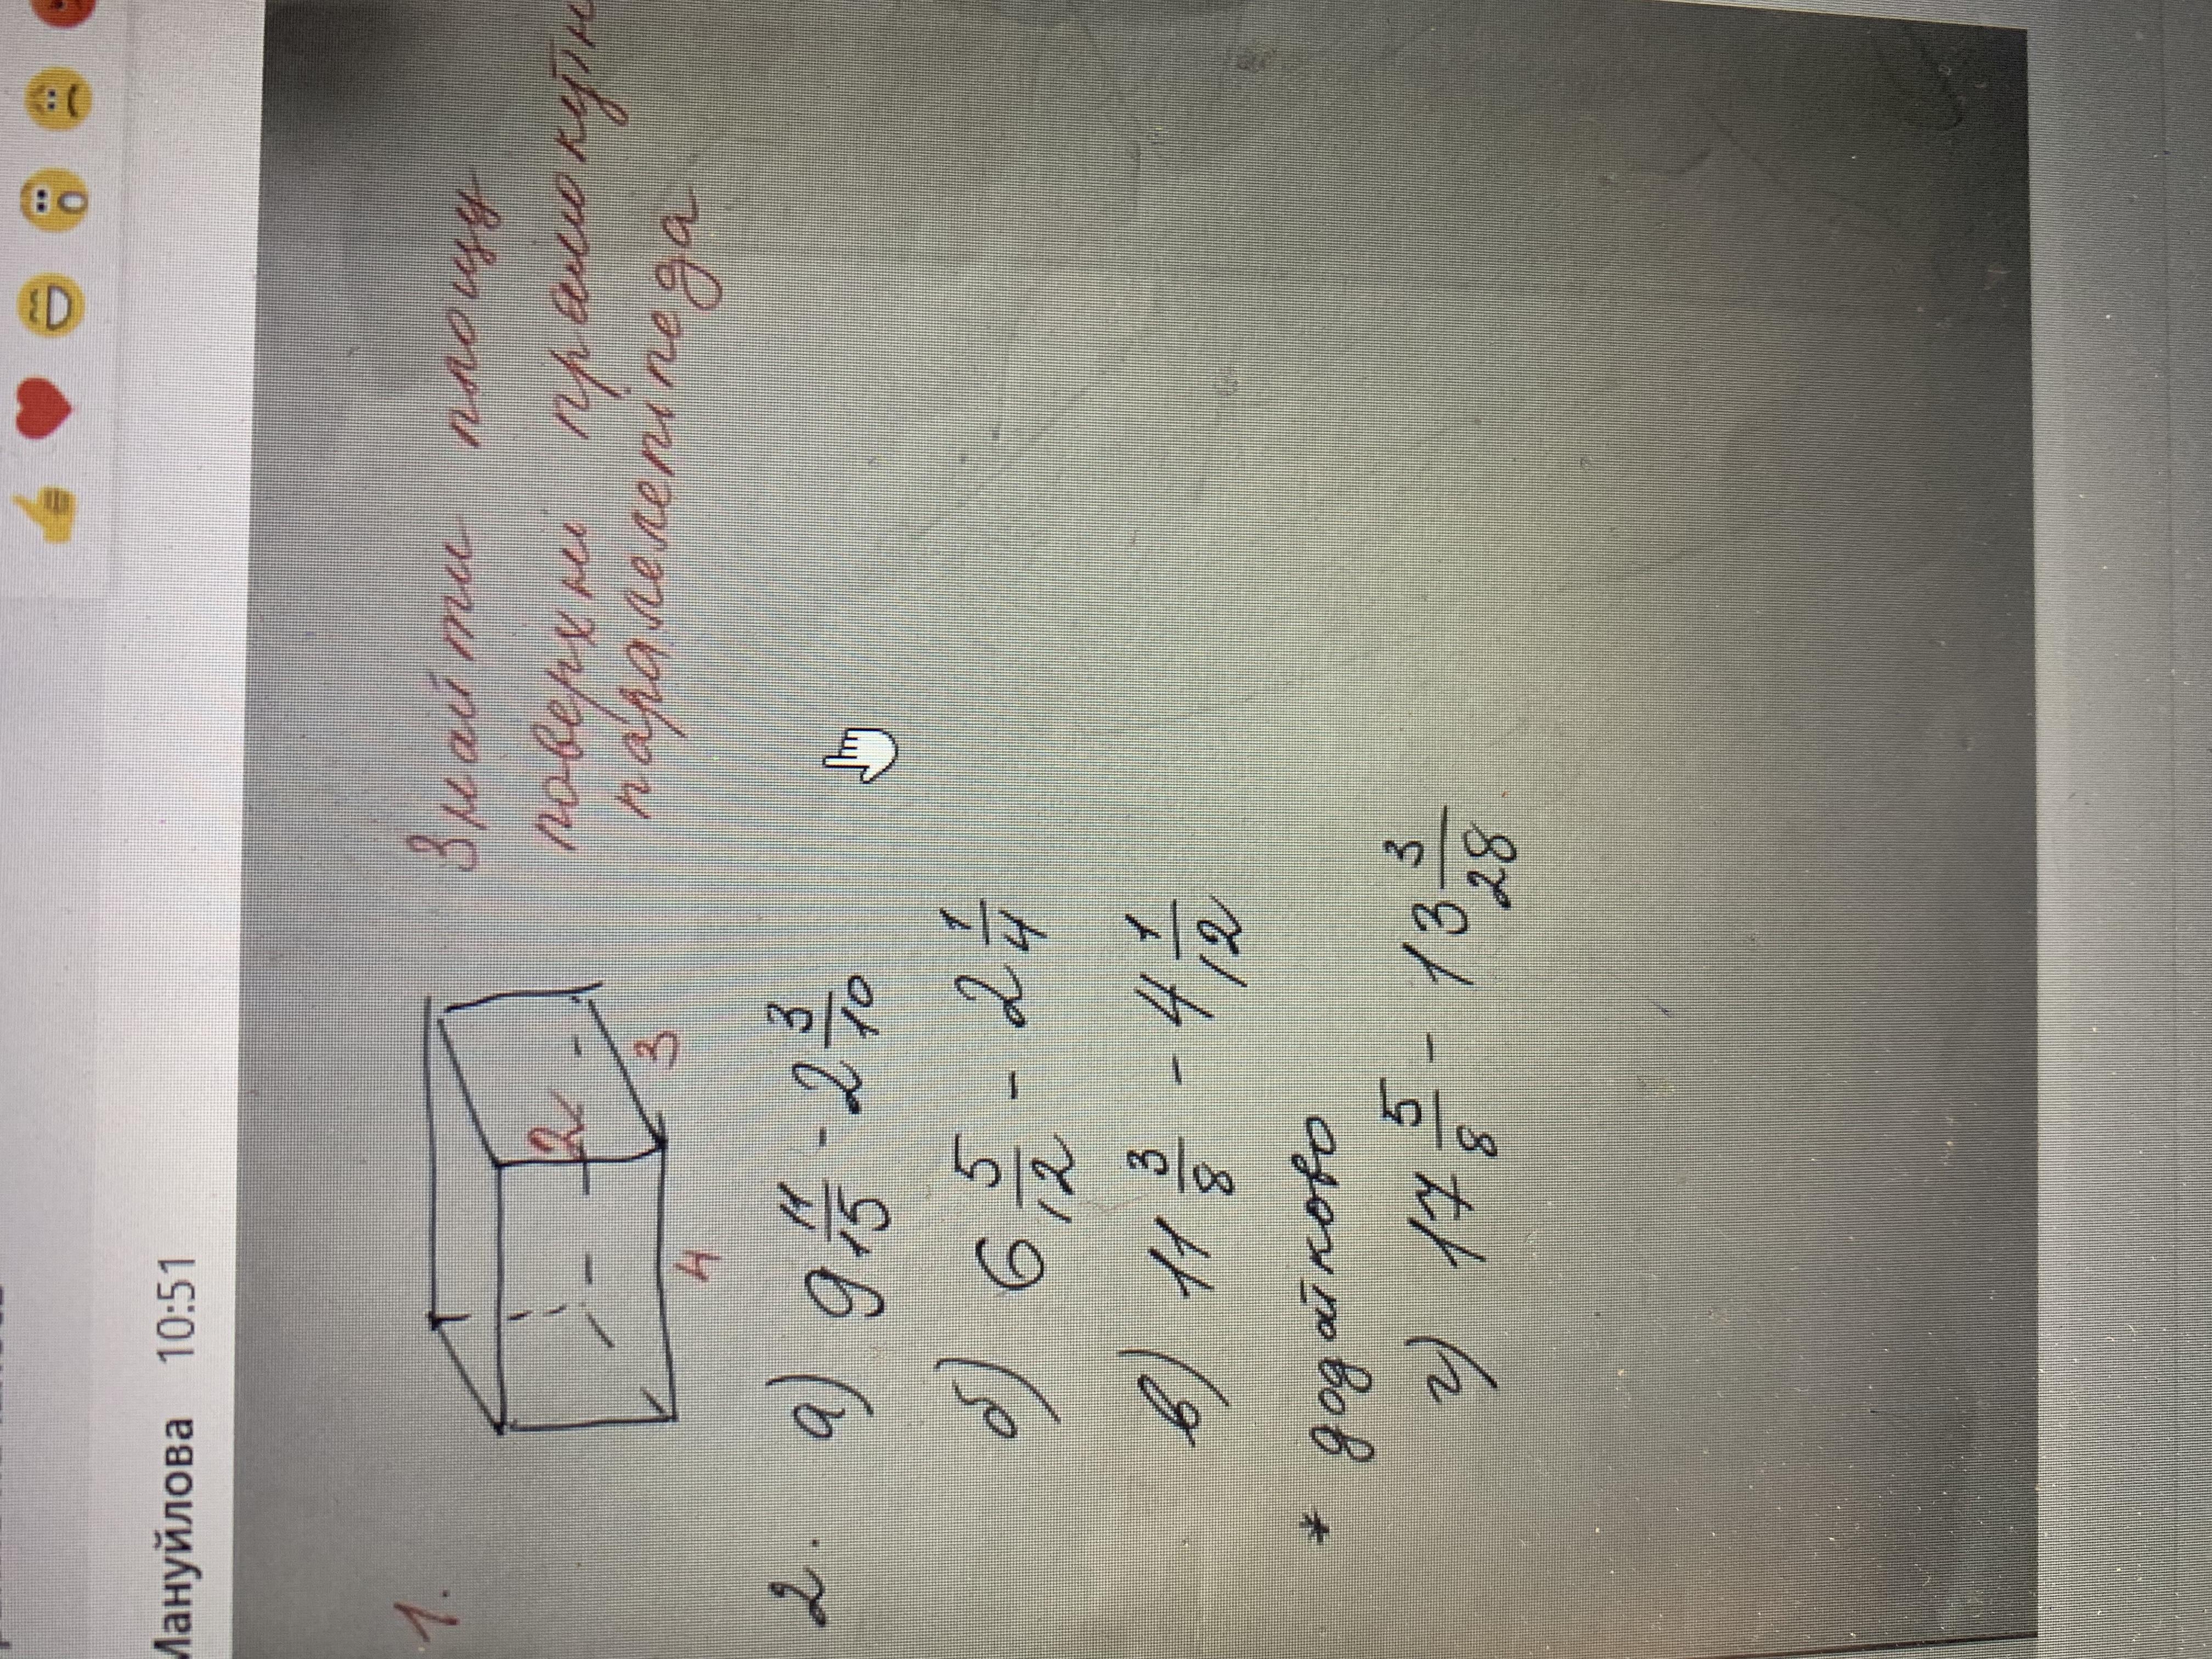 Мануйлова 10:51
1.
Знайти площу
поверхні прямокутн
паралелепіпеда
2
3
4
2. а) 9 11/15 - 2 3/10
б) 6 5/12 - 2 1/4
в) 11 3/8 - 4 1/12
* додатково
г) 17 5/8 - 13 3/28